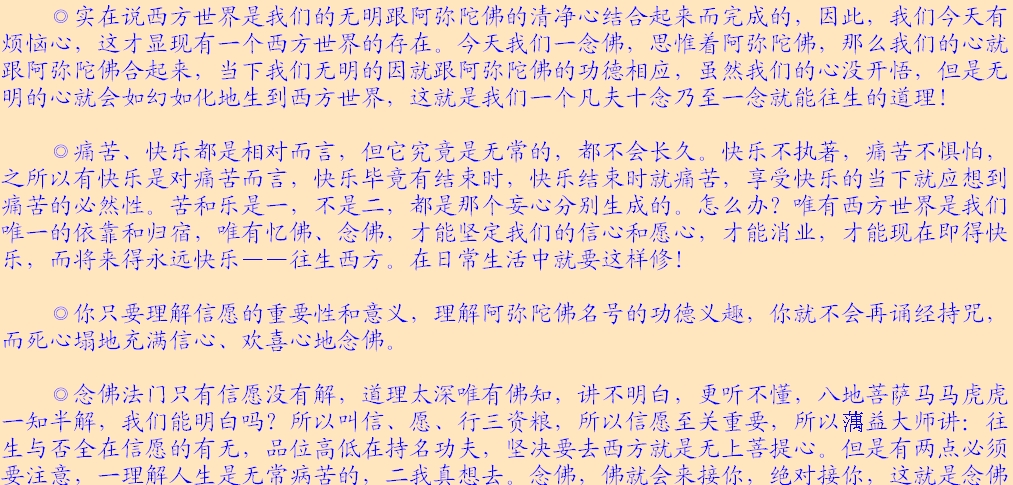 ◎实在说西方世界是我们的无明跟阿弥陀佛的清净心结合起来而完成的，因此，我们今天有
烦恼心，这才显现有一个西方世界的存在。今天我们一念佛，思惟着阿弥陀佛，那么我们的心就
跟阿弥陀佛合起来，当下我们无明的因就跟阿弥陀佛的功德相应，虽然我们的心没开悟，但是无
明的心就会如幻如化地生到西方世界，这就是我们一个凡夫十念乃至一念就能往生的道理！
◎痛苦、快乐都是相对而言，但它究竟是无常的，都不会长久。快乐不执著，痛苦不惧怕，
之所以有快乐是对痛苦而言，快乐毕竟有结束时，快乐结束时就痛苦，享受快乐的当下就应想到
痛苦的必然性。苦和乐是一，不是二，都是那个妄心分别生成的。怎么办？唯有西方世界是我们
唯一的依靠和归宿，唯有忆佛、念佛，才能坚定我们的信心和愿心，才能消业，才能现在即得快
乐，而将来得永远快乐——往生西方。在日常生活中就要这样修！
◎你只要理解信愿的重要性和意义，理解阿弥陀佛名号的功德义趣，你就不会再诵经持咒，
而死心塌地充满信心、欢喜心地念佛。
◎念佛法门只有信愿没有解，道理太深唯有佛知，讲不明白，更听不懂，八地菩萨马马虎虎
一知半解，我们能明白吗？所以叫信、愿、行三资粮，所以信愿至关重要，所以蕅益大师讲：往
生与否全在信愿的有无，品位高低在持名功夫，坚决要去西方就是无上菩提心。但是有两点必须
要注意，一理解人生是无常病苦的，二我真想去。念佛，佛就会来接你，绝对接你，这就是念佛